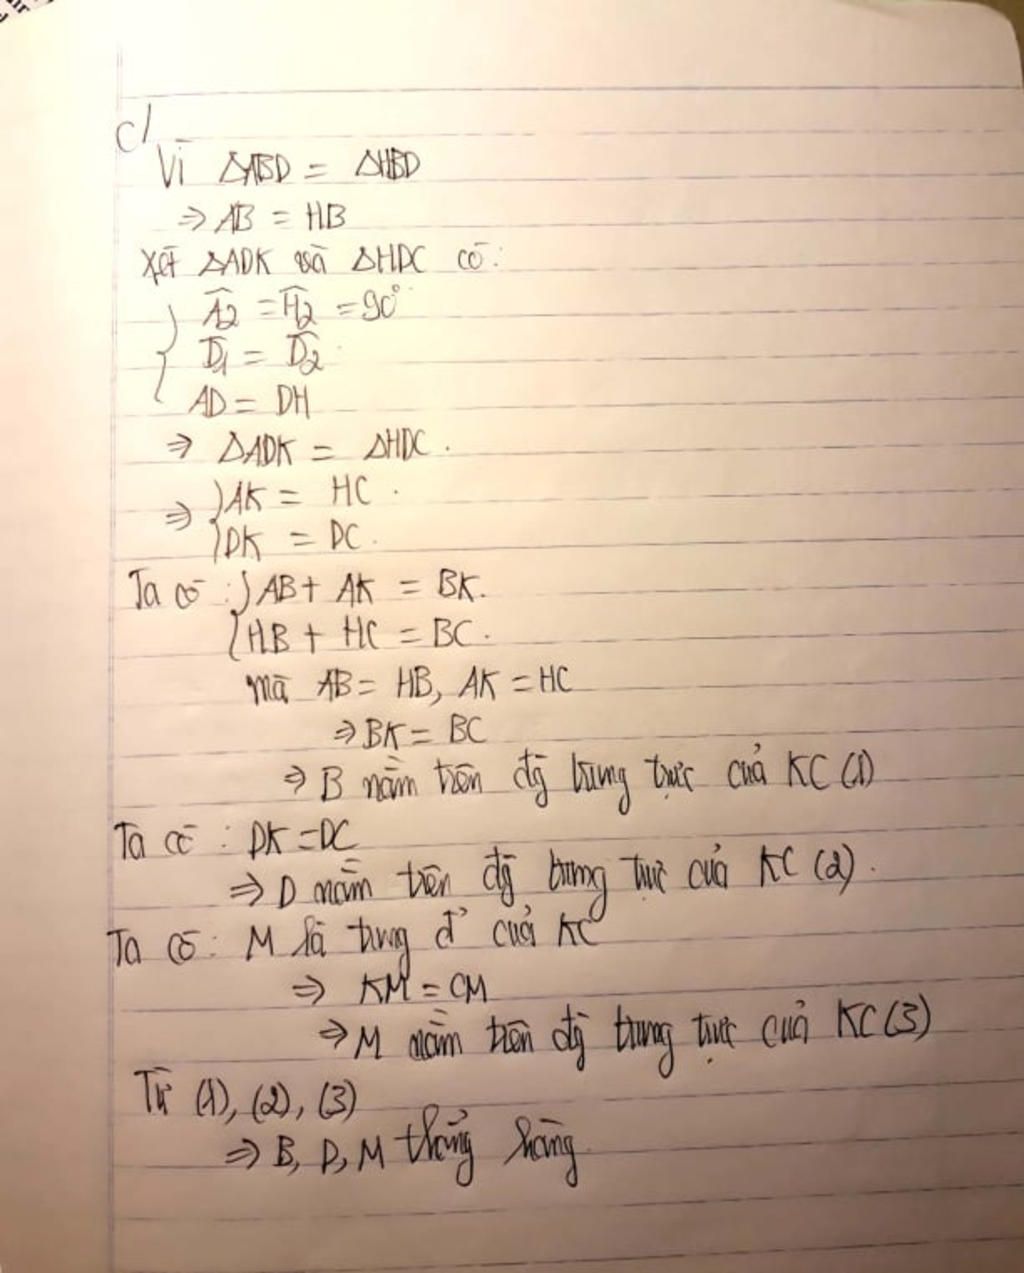 c/
Vì ΔABD = ΔHBD
⇒ AB = HB
Xét ΔADK và ΔHDC có:
Â2 = Ĥ2 = 90°
D̂1 = D̂2
AD = DH
⇒ ΔADK = ΔHDC.
⇒ { AK = HC.
DK = DC.
Ta có: { AB + AK = BK.
HB + HC = BC.
mà AB = HB, AK = HC
⇒ BK = BC
⇒ B nằm trên đg̃ trung trực của KC (1)
Ta có: DK = DC
⇒ D nằm trên đg̃ trung trực của KC (2).
Ta có: M là trung đ' của KC
⇒ KM = CM
⇒ M nằm trên đg̃ trung trực của KC (3)
Từ (1), (2), (3)
⇒ B, D, M thẳng hàng